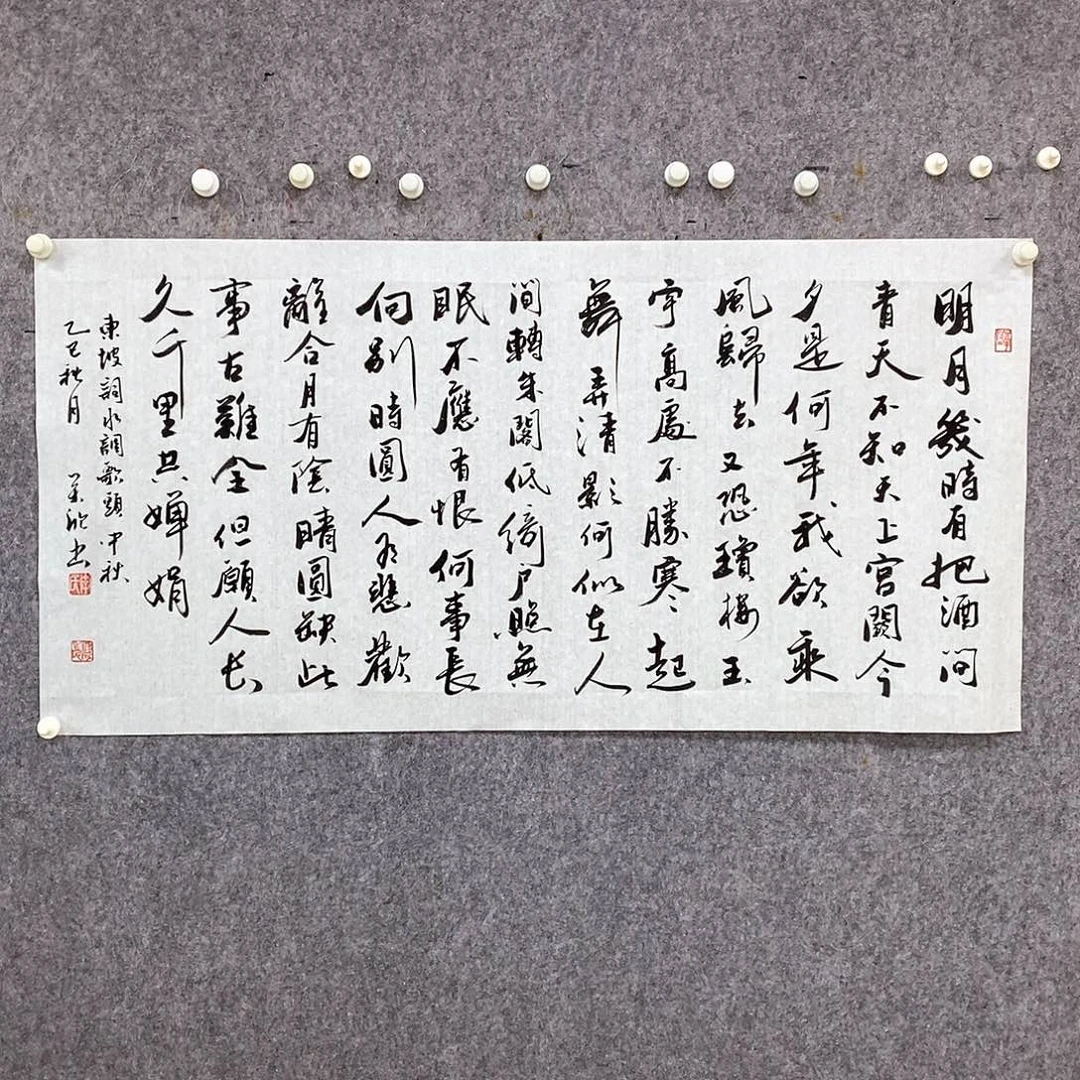 明月幾時有把酒问
青天不知天上宫闕今
夕是何年我欲乘
風歸去又恐瓊楼玉
宇高處不勝寒起
舞弄清影何似在人
间轉朱閣低綺户照無
眠不應有恨何事長
向别時圓人有悲歡
離合月有陰晴圓缺此
事古難全但願人长
久千里共嬋娟
東坡詞水調歌頭中秋
乙巳秋月 书